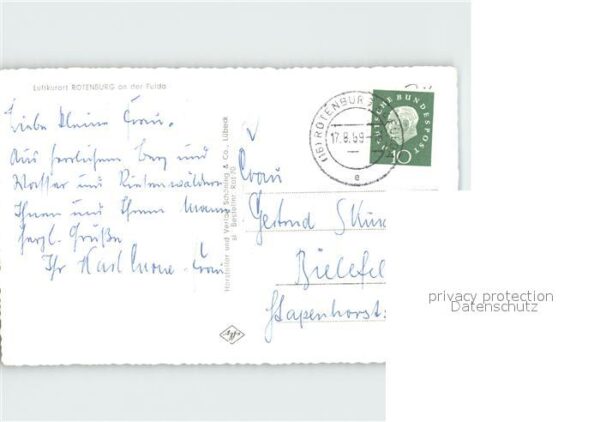 Luftkurort ROTENBURG an der Fulda
Liebe kleine Frau.
Aus herrlichem Berg und
Wasser und Riesenwäldern
Ihnen und Ihrem Mann
herzl. Grüße
Ihr Karl
Hersteller und Verlag Schöning & Co., Lübeck
Bestellnr. Rot 70
(16) ROTENBURG
17.8.59
e
DEUTSCHE BUNDESPOST
10
Frau
Gertrud
Bielefel
Stapenhorst
Agfa
privacy protection
Datenschutz